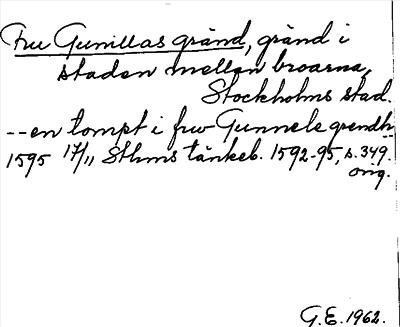 Fru Gunillas gränd, gränd i
staden mellan broarna,
Stockholms stad.
--en tompt i frw Gunnele grendh
1595 17/11 Sthms tänkeb. 1592-95, s. 349.
orig.
G.E. 1962.